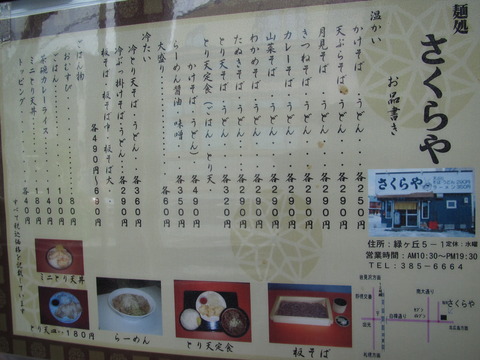 麺処
さくらや
お品書き
温かい
かけそば・うどん・・・各250円
天ぷらそば・うどん・・各290円
月見そば・うどん・・・各290円
きつねそば・うどん・・各290円
カレーそば・うどん・・各290円
山菜そば・うどん・・・各290円
わかめそば・うどん・・各290円
たぬきそば・うどん・・各290円
とり天そば・うどん・・各320円
とり天定食(ごはん とり天
かけそば・うどん)各490円
らーめん 醤油 味噌・・各350円
大盛り・・・各60円
冷たい
冷とり天そば・うどん・・各360円
冷ぶっ掛けそば・うどん・各290円
板そば 板そば中・板そば大・
各490円~890円
ごはん物
おむすび・・・80円
ごはん・・・100円
茶碗カレーライス・・・140円
ミニとり天丼・・・180円
トッピング・・・各40円
すべて税込価格を記載しています
さくらや
住所:緑ヶ丘5-1 定休:水曜
営業時間:AM10:30~PM19:30
TEL:385-6664
ミニとり天丼
とり天 180円
らーめん
とり天定食
板そば
さくらや